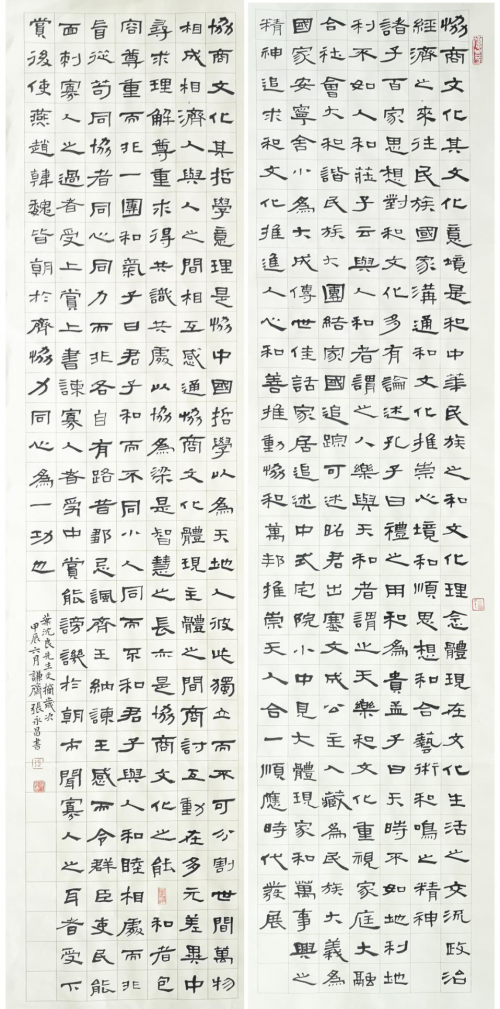 協商文化其文化意境是和中華民族之和文化理念體現在文化生活之交流政治
經濟之來往民族國家溝通和文化推崇心境和順思想和合藝術和鳴之精神
諸子百家思想對和文化多有論述孔子曰禮之用和為貴孟子曰天時不如地利地
利不如人和莊子云與人和者謂之人樂與天和者謂之天樂和文化重視家庭大融
合社會大和諧民族大團結家國追踪可述昭君出塞文成公主入藏為民族大義為
國家安寧舍小為大成傳世佳話家居追述中式宅院小中見大體現家和萬事興之
精神追求和文化推進人心和善推動協和萬邦推崇天人合一順應時代發展
協商文化其哲學意理是協中國哲學以為天地人彼此獨立而不可分割世間萬物
相成相濟人與人之間相互感通協商文化體現主體之間商討互動在多元差異中
尋求理解尊重求得共識共處以協為梁是智慧之長亦是協商文化之能和者包
容尊重而非一團和氣子曰君子和而不同小人同而不和君子與人和睦相處而非
盲從苟同協者同心同力而非各自有路昔鄒忌諷齊王納諫王感而令群臣吏民能
面刺寡人之過者受上賞上書諫寡人者受中賞能謗譏於朝市聞寡人之耳者受下
賞後使燕趙韓魏皆朝於齊協力同心為一功也
葉沈良先生文摘歲次
甲辰六月謙齋張永昌書